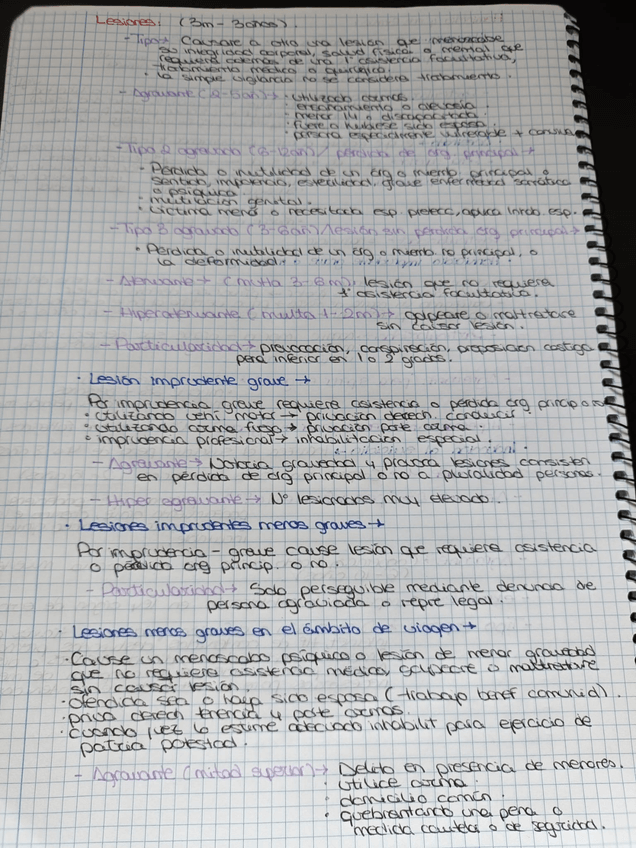 Lesiones: (3m - 3años).
- Tipo→ Causare a otro una lesión que menoscabe
su integridad corporal, salud física o mental que
requiera además de una 1ª asistencia facultativa,
tratamiento médico o quirúgico.
• la simple vigilancia no se considera tratamiento.
- Agravante (2-5añ)→ • utilizado armas.
• ensañamiento o alevosía.
• menor 14 o discapacitado.
• fuere o hubiese sido esposa.
• persona especialmente vulnerable + conviva
- Tipo 2 agravado (6-12añ) / pérdida de org. principal→
• Pérdida o inutilidad de un órg o miemb. principal, o
sentido, impotencia, esterilidad, grave enfermedad somática
o psíquica.
• mutilación genital.
• víctima menor o necesitada esp. protecc, aplica inhab. esp.
- Tipo 3 agravado (3-6añ) / lesión sin pérdida org. principal→
• Pérdida o inutilidad de un órg o miemb. no principal, o
la deformidad.
- Atenuante→ (multa 3-6m), lesión que no requiera
1ª asistencia facultativa.
- Hiperatenuante (multa 1-2m)→ golpeare o maltratare
sin causar lesión.
- Particularidad→ provocación, conspiración, proposición castiga
pena inferior en 1 o 2 grados.
• Lesión imprudente grave→
Por imprudencia grave requiera asistencia o pérdida órg princip o no
• utilizando vehí motor→ privación derech. conducir.
• utilizando arma fuego→ privación porte arma.
• imprudencia profesional→ inhabilitación especial.
- Agravante→ Notoria gravedad y provoca lesiones consisten
en pérdida de org principal o no a pluralidad personas.
- Hiper agravante→ Nº lesionados muy elevado.
• Lesiones imprudentes menos graves→
Por imprudencia - grave cause lesión que requiera asistencia
o pérdida org princip. o no.
- Particularidad→ Solo perseguible mediante denuncia de
persona agraviada o repre legal.
• Lesiones menos graves en el ámbito de viogen→
• Cause un menoscabo psíquico o lesión de menor gravedad
que no requiera asistencia médica, golpeare o maltratare
sin causar lesión.
• ofendida sea o haya sido esposa (-trabajo benef comunid).
• priva derech tenencia y porte armas.
• cuando juez lo estime adecuado inhabilit para ejercicio de
patria potestad.
- Agravante (mitad superior)→ Delito en presencia de menores.
• utilice arma.
• domicilio común.
• quebrantando una pena o
medida cautelar o de seguridad.